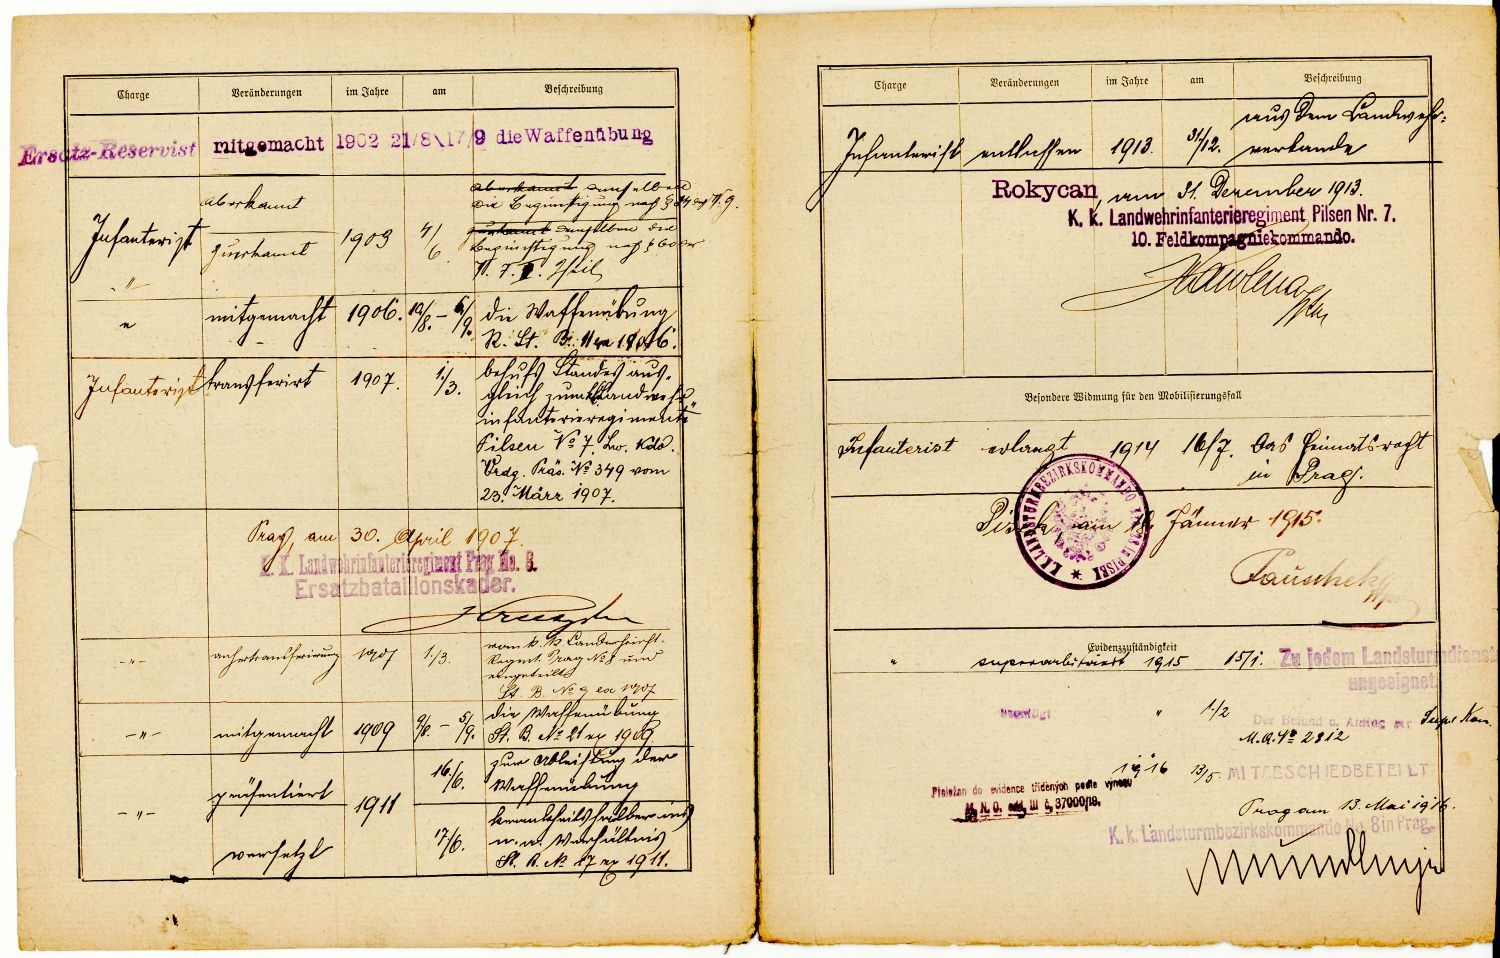 Charge Veränderungen im Jahre am Beschreibung
Ersatz-Reservist mitgemacht 1902 21/8 \ 17/9 die Waffenübung
aberkannt
aberkannt denselben
die Begünstigung nach §
Infanterist
zuerkannt 1903
zuerkannt denselben die
Begünstigung nach § 60 der
W. V. I. Theil
"
" mitgemacht 1906. 10/8. – 6/9. die Waffenübung
K. St. B.
Infanterist transferirt 1907. 1./3. behufs Standes aus-
gleich zum Landwehr
infanterieregimente
Pilsen No 7. Lw. Kdo.
Vrdg. Präs. No 349 vom
23. März 1907.
Prag, am 30. April 1907.
K. K. Landwehrinfanterieregiment Prag No. 8.
Ersatzbataillonskader.
-"- anhertransferirung 1907 1./3. vom k. k. Landwehrinft.
Regmt. Prag No 8 und
eingeteilt
St. B. No 9 ex 1907
-"- mitgemacht 1909 9/8. – 5/9. die Waffenübung
St. B. No 21 ex 1909
-"- präsentiert 1911 16./6. zur Ableistung der
Waffenübung
versetzt 17/6. krankheitshalber ins
n. a. Verhältnis
St. B. No 17 ex 1911.
Charge Veränderungen im Jahre am Beschreibung
Infanterist entlassen 1913. 31./12. aus dem Landwehr-
verbande
Rokycan, am 31. Dezember 1913.
K. k. Landwehrinfanterieregiment Pilsen Nr. 7.
10. Feldkompagniekommando.
Besondere Widmung für den Mobilisierungsfall
Infanterist erlangt 1914 16/7. das Heimatsrecht
in Prag.
Pisek am 18. Jänner 1915.
K. K. LANDSTURMBEZIRKSKOMMANDO IN PISEK
Evidenzzuständigkeit
" superarbitriert 1915 15/1. Zu jedem Landsturmdienste
ungeeignet
" 1./2 Der Befund u. Antrag der Supr Kom.
M. A. No 2812
1916 13/5. MIT ABSCHIED BETEILT
Přeložen do evidence tříděných podle výnosu
M. N. O. odd. III č. 37000/19.
Prag am 13. Mai 1916.
K. k. Landsturmbezirkskommando No. 8 in Prag.